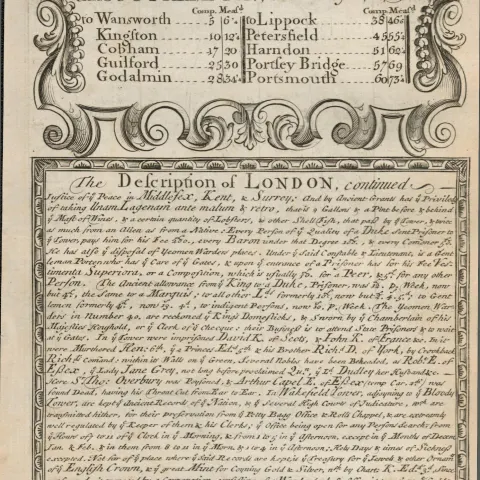 Comp. Meas.d Comp. Meas.d
to Wansworth 5 6 to Lippock 38 46
Kingston 10 12 Petersfield 45 55
Cobham 17 20 Harndon 51 62
Guilford 25 30 Portsey Bridge 57 69
Godalmin 28 34 Portsmouth 60 73
The Description of LONDON, continued
Justice of ye Peace in Middlesex, Kent, & Surrey; And by Ancient Grants has ye Privilege
of taking Unam Lagenam ante malum & retro, that is 2 Gallons & a Pint before & behind
ye Mast of Wines, & a certain quantity of Lobsters, & other Shell Fish, that pass by ye Tower, & twice
as much from an Alien as from a Native: Every Person of ye Quality of a Duke sent Prisoner to
ye Tower, pays him for his Fee £20, every Baron under that Degree
He has also ye disposal of Yeomen Warders places; Under ye Said Constable & Lieutenant, is a Gent
leman Porter who has ye Care of ye Gates, & upon ye entrance of a Prisoner has for his Fee Ves-
timenta Superiora, or a Composition, which is usually for a Peer, & for any other
Person. The Ancient allowance from ye King to a Duke, Prisoner, was p. Week, now
but the Same to a Marquis; to all other Lds. formerly now but to Gent
lemen formerly now to indigent Persons, now p. Week. The Yeomen War-
ders in Number 40, are reckoned ye Kings Domesticks, & Sworn by ye Chamberlain of his
Majesties Houshold, or ye Clerk of ye Checque: their Business is to attend State Prisoners & to wait
at ye Gates. In ye Tower were imprisoned David K. of Scots, & John K. of France &c. In it
were Murthered Hen: 6th, ye 2 Princes Edwd. 5th & his Brother Richd. D. of York, by Crookback
Richds. Command: within its Walls on ye Green, Several Nobles have been Beheaded, as Robt. E. of
Essex, ye Lady Jane Grey, not long before proclaimed Qun., ye Ld. Dudley her Husband &c.
Here Sr. Tho: Overbury was Poysoned, & Arthur Capel E. of Essex (temp Car. 2di) was
found Dead, having his Throat Cut from Ear to Ear. In Wakefield Tower, adjoyning to ye Bloody
Tower, are kept ye Ancient Records of ye Nation, in ye Several High Court of Judicature, & are
transmitted hither, for their preservation from ye Petty Bagg Office & Rolls Chappel, & are extremely
well regulated by ye Keeper of them & his Clerks; ye Office being open for any Persons Search; from
ye Hours off to 11 of ye Clock in ye Morning, & from 1 to 5 in ye Afternoon, except in ye Months of Decem
Jan. & Feb., & in them from to 11 in ye Morn, & 1 to 4 in ye Afternoon; Holy Days & times of Sickness
excepted. Not far of ye place where ye Said Records are kept, is ye Treasury for ye Jewels & other Ornamts.
of ye English Crown, & ye great Mint for Coyning Gold & Silver,